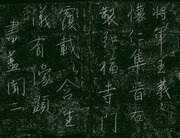 將軍王羲之
懷仁集晉右
製弘福寺門
覆載以含生
儀有像顯
書蓋聞二